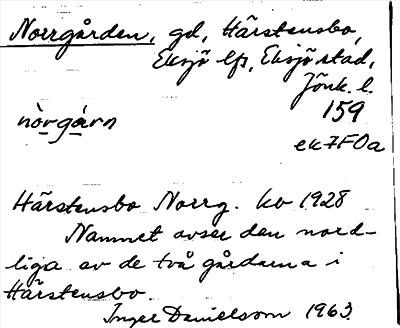 Norrgården, gd, Härstensbo,
Eksjö lfs, Eksjö stad,
Jönk. l.
159
nòrgárn
ek 7F0a
Härstensbo Norrg. kv 1928
Namnet avser den nord-
liga av de två gårdarna i
Härstensbo.
Inger Danielsson 1963